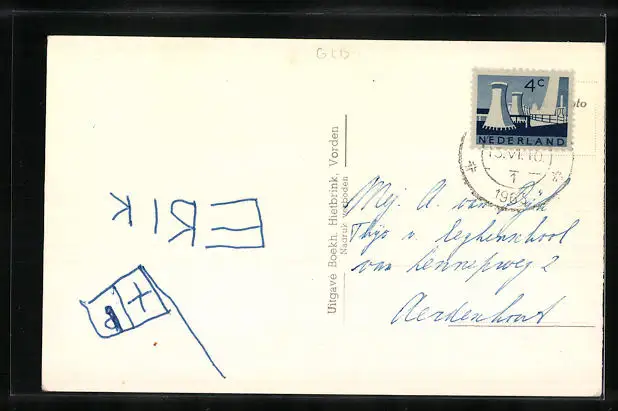 GLD
4c
NEDERLAND
oto
15.VI.10
1
196
Uitgave Boekh. Hietbrink, Vorden
Nadruk verboden
Mej. A. van Dijk
Thijs v. Leghenschool
van Lennepweg 2
Aerdenhout